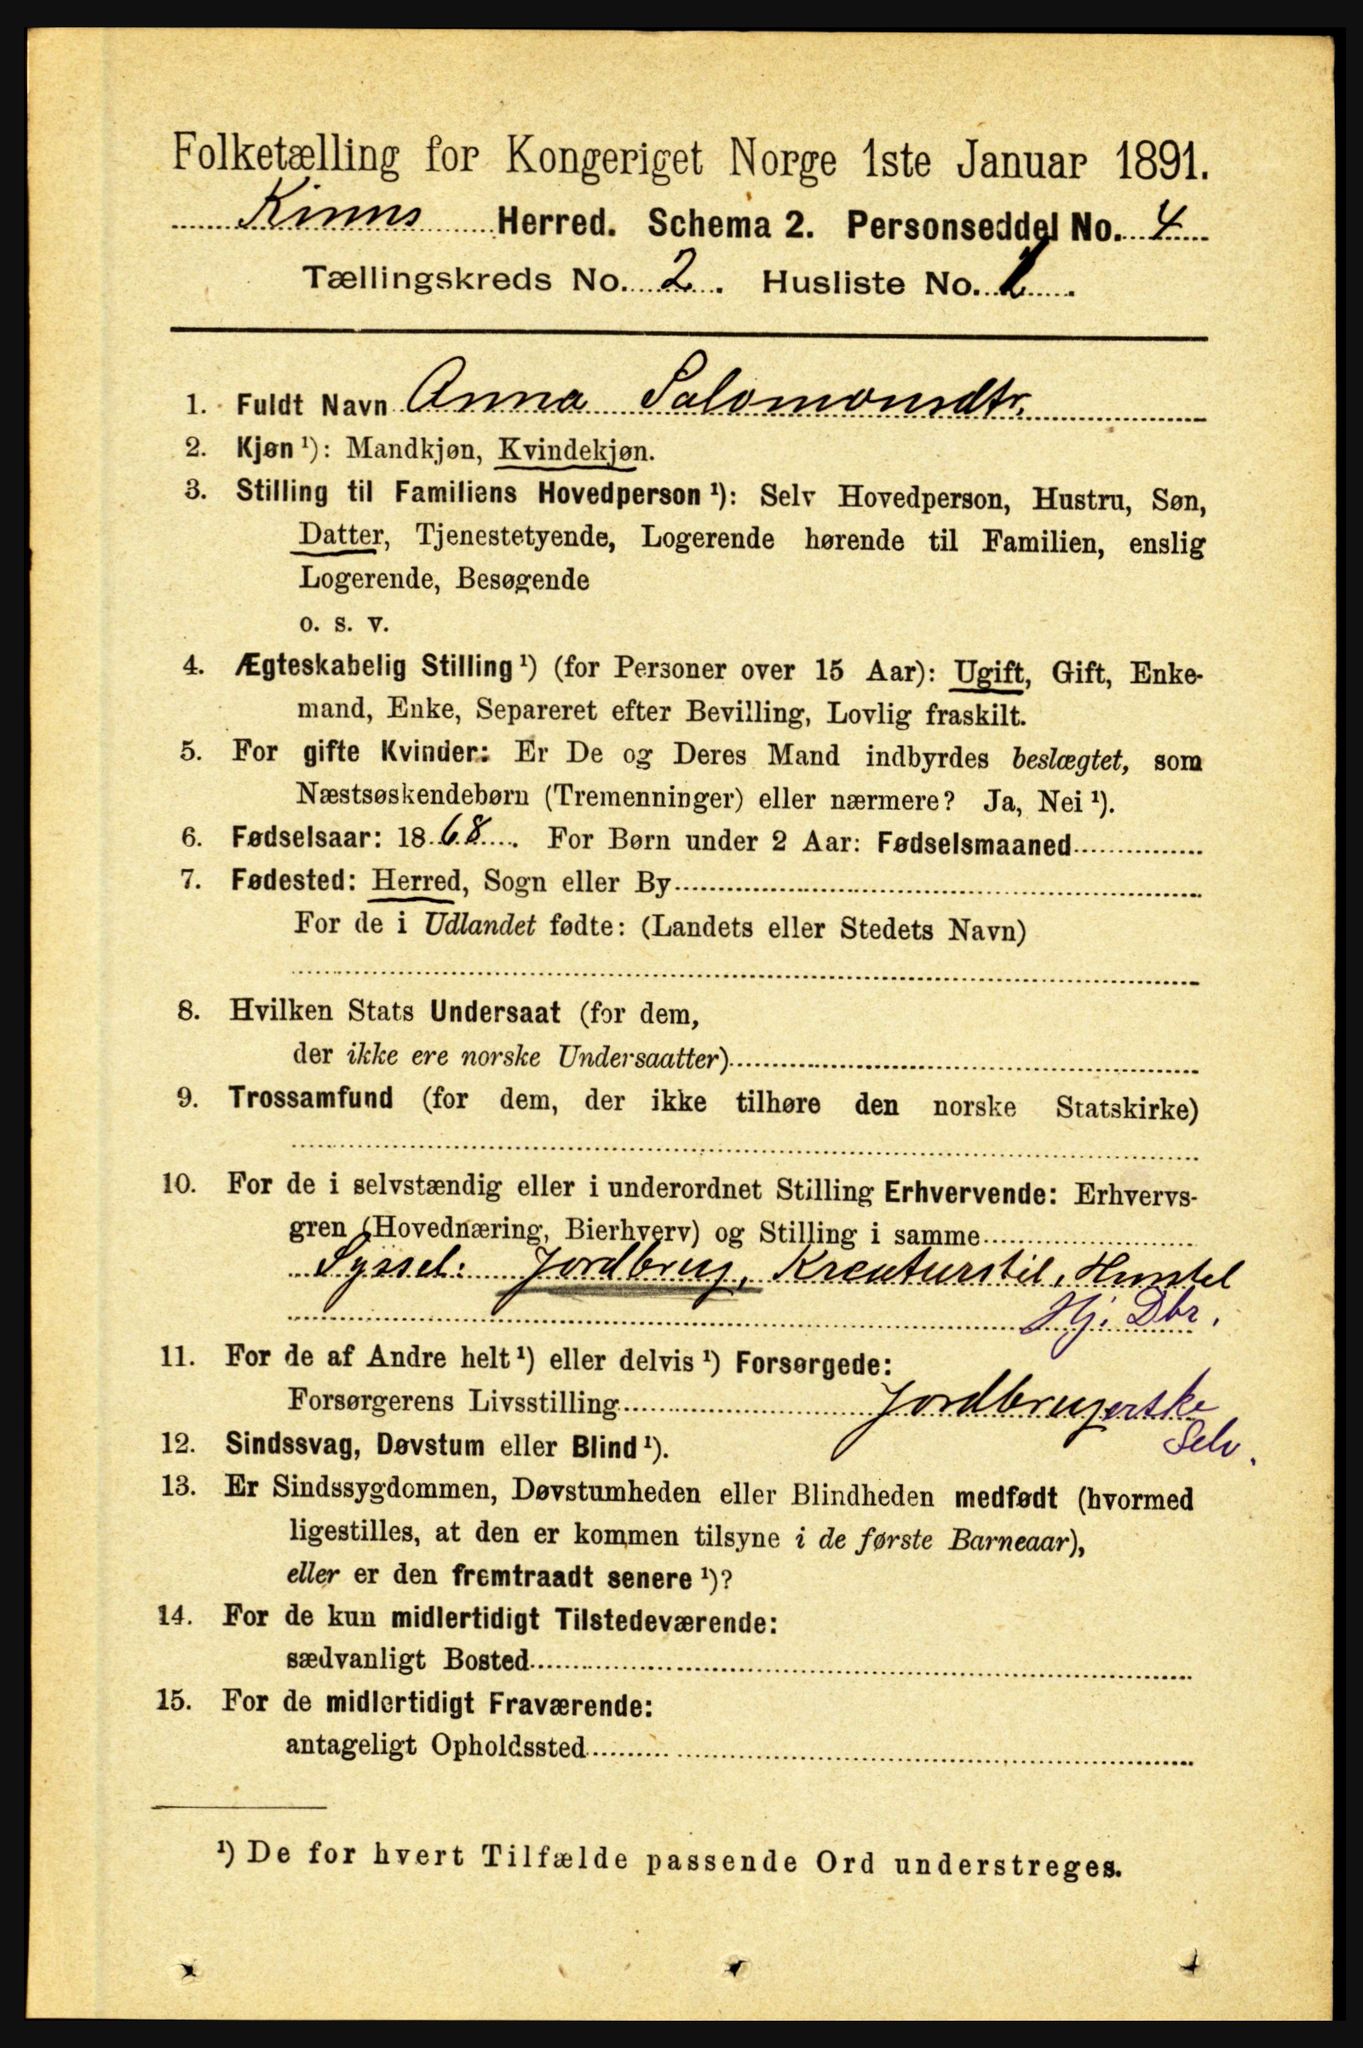 Folketælling for Kongeriget Norge 1ste Januar 1891.
Kinns Herred. Schema 2. Personseddel No. 4
Tællingskreds No. 2. Husliste No. 1.
1. Fuldt Navn Anna Salomonsdtr.
2. Kjøn ¹): Mandkjøn, Kvindekjøn.
3. Stilling til Familiens Hovedperson ¹): Selv Hovedperson, Hustru, Søn,
Datter, Tjenestetyende, Logerende hørende til Familien, enslig
Logerende, Besøgende
o. s. v.
4. Ægteskabelig Stilling ¹) (for Personer over 15 Aar): Ugift, Gift, Enke-
mand, Enke, Separeret efter Bevilling, Lovlig fraskilt.
5. For gifte Kvinder: Er De og Deres Mand indbyrdes beslægtet, som
Næstsøskendebørn (Tremenninger) eller nærmere? Ja, Nei ¹).
6. Fødselsaar: 1868. For Børn under 2 Aar: Fødselsmaaned
7. Fødested: Herred, Sogn eller By
For de i Udlandet fødte: (Landets eller Stedets Navn)
8. Hvilken Stats Undersaat (for dem,
der ikke ere norske Undersaatter)
9. Trossamfund (for dem, der ikke tilhøre den norske Statskirke)
10. For de i selvstændig eller i underordnet Stilling Erhvervende: Erhvervs-
gren (Hovednæring, Bierhverv) og Stilling i samme
Syssel: Jordbrug, Kreaturstel, Husstel
Hj. Dbr.
11. For de af Andre helt ¹) eller delvis ¹) Forsørgede:
Forsørgerens Livsstilling Jordbrugerske
Selv.
12. Sindssvag, Døvstum eller Blind ¹).
13. Er Sindssygdommen, Døvstumheden eller Blindheden medfødt (hvormed
ligestilles, at den er kommen tilsyne i de første Barneaar),
eller er den fremtraadt senere ¹)?
14. For de kun midlertidigt Tilstedeværende:
sædvanligt Bosted
15. For de midlertidigt Fraværende:
antageligt Opholdssted
¹) De for hvert Tilfælde passende Ord understreges.